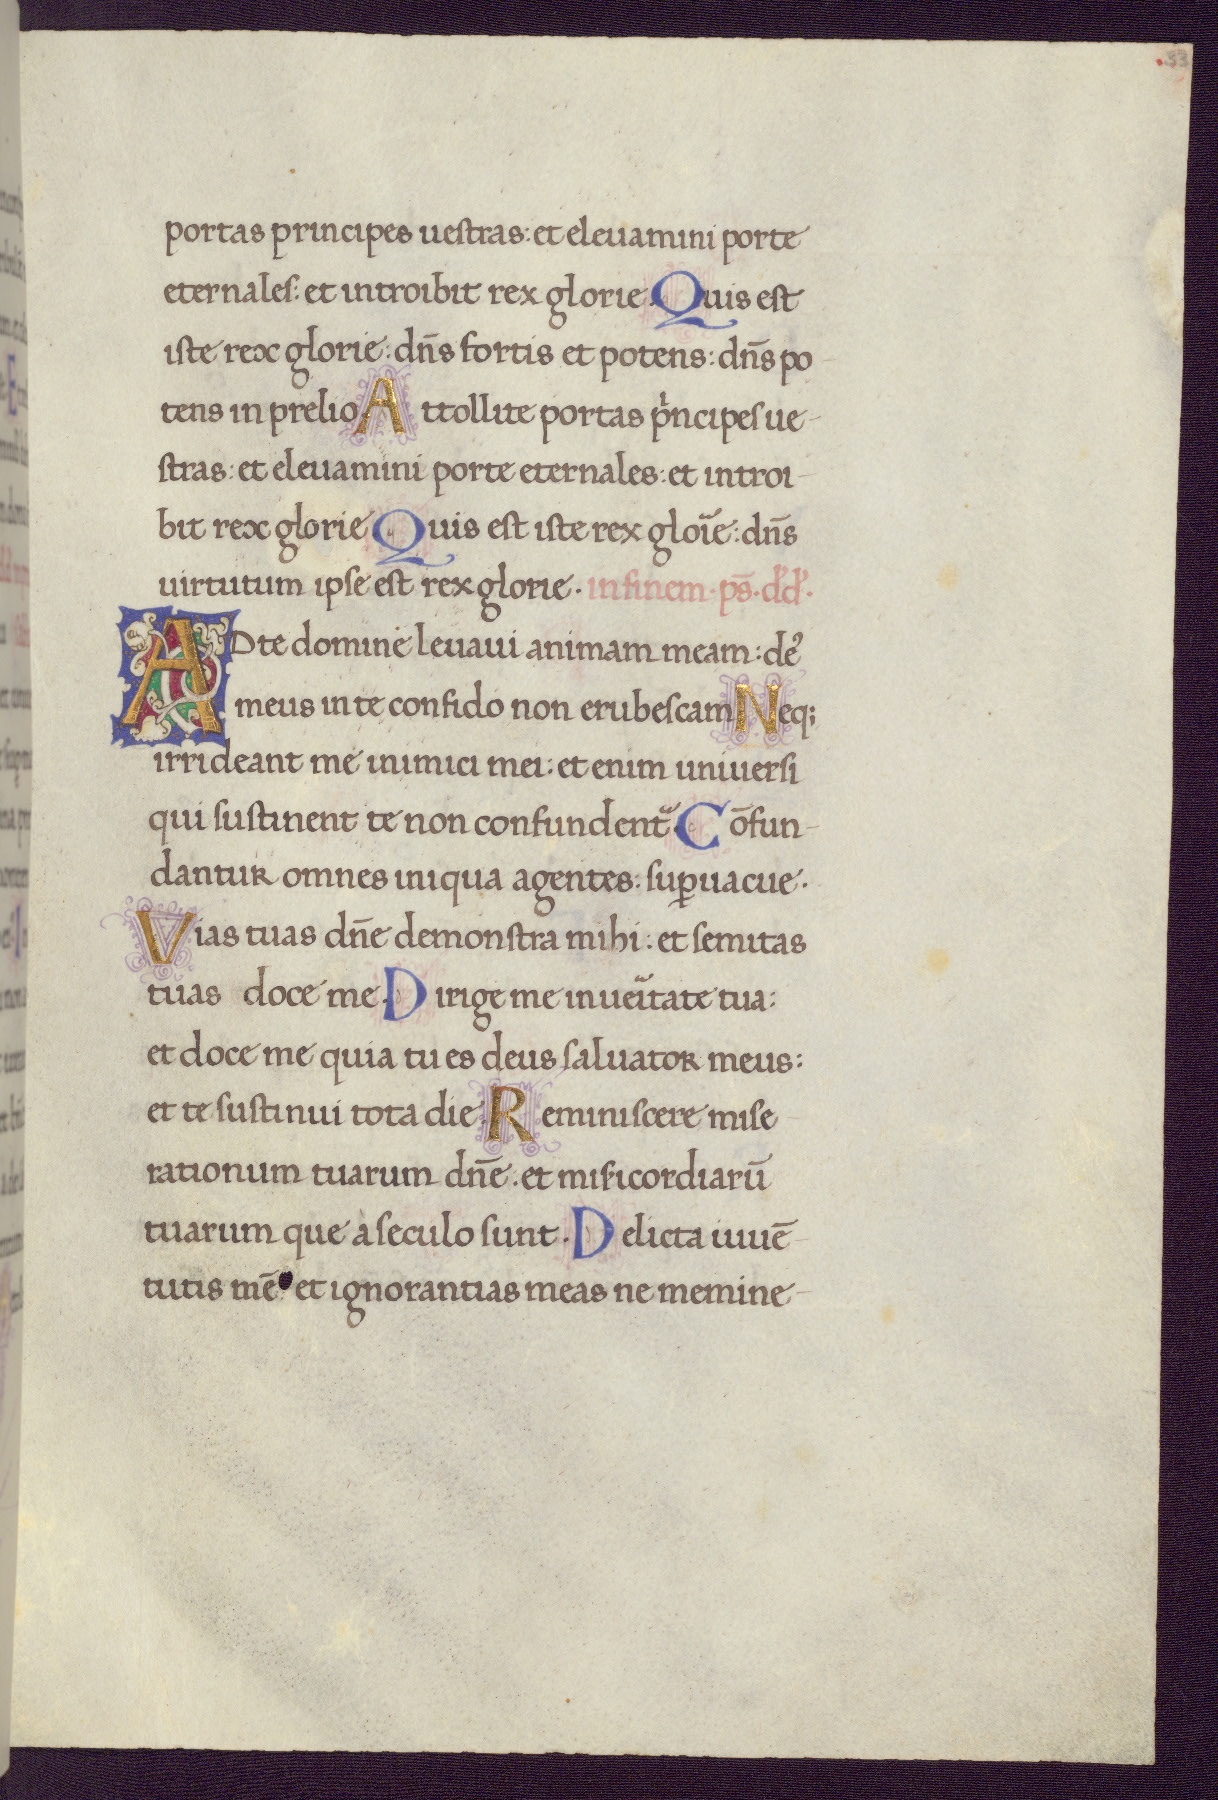 33
portas principes uestras: et eleuamini porte
eternales: et introibit rex glorie. Quis est
iste rex glorie: dn̄s fortis et potens: dn̄s po
tens in prelio. Attollite portas pⁱncipes ue-
stras: et eleuamini porte eternales: et introi-
bit rex glorie. Quis est iste rex gloı̄e: dn̄s
uirtutum ipse est rex glorie. in finem. ps̄. dd.
AD te domine leuaui animam meam: de᾽
meus in te confido non erubescam. Neq;
irrideant me inimici mei: et enim uniuersi
qui sustinent te non confundent᷑. Cōfun-
dantur omnes iniqua agentes: suꝑuacue.
Vias tuas dn̄e demonstra mihi: et semitas
tuas doce me. Dirige me in ueı̄tate tua:
et doce me quia tu es deus saluator meus:
et te sustinui tota die. Reminiscere mise-
rationum tuarum dn̄e: et misicordiarū
tuarum que a seculo sunt. Delicta iuuē-
tutis mē et ignorantias meas ne memine-